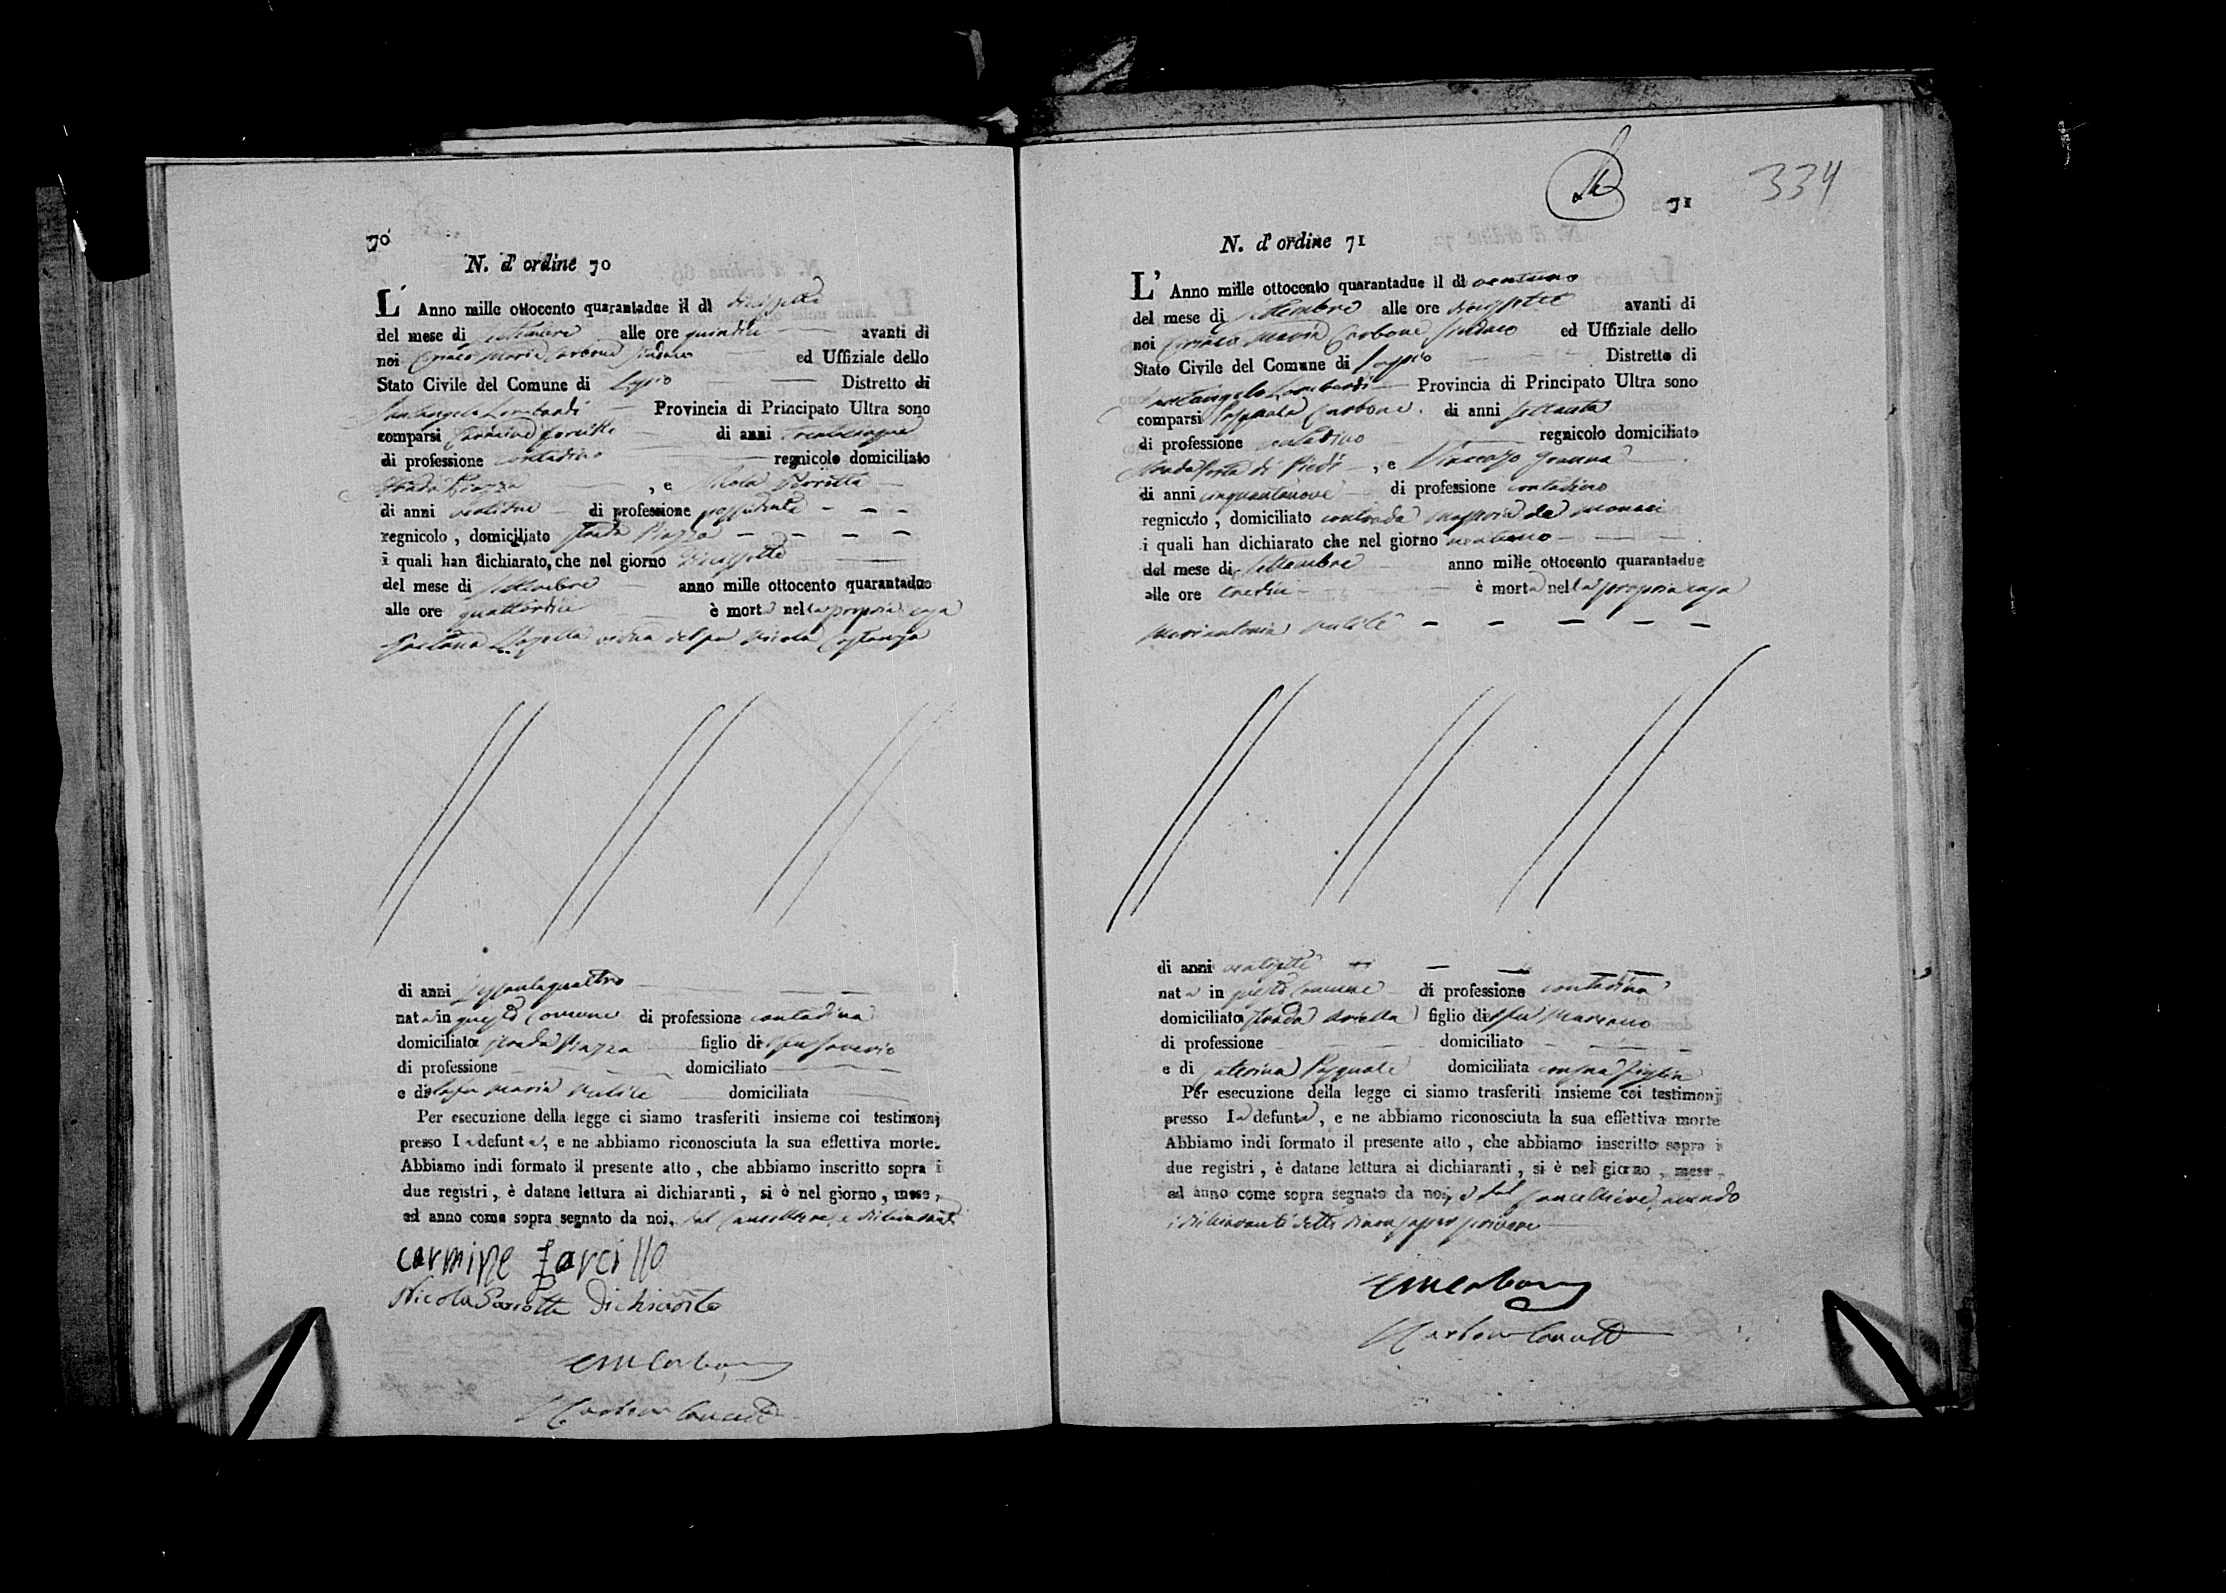 70
N. d' ordine 70
L' Anno mille ottocento quarantadue il di diecissette
del mese di settembre alle ore quindici avanti di
noi Ciriaco Maria Carbone Sindaco ed Uffiziale dello
Stato Civile del Comune di Distretto di
Santangelo Lombardi Provincia di Principato Ultra sono
comparsi Carmine di anni trentacinque
di professione contadino regnicolo domiciliato
strada Piazza , e Nicola
di anni di professione possidente
regnicolo , domiciliato strada Piazza
i quali han dichiarato, che nel giorno diecissette
del mese di settembre anno mille ottocento quarantadue
alle ore quattordici è morta nella propria casa
Gaetana vedova del fu Nicola Costanza
di anni sessantaquattro
nata in questo Comune di professione contadina
domiciliata strada Piazza figlio di fu Saverio
di professione domiciliato
e di Maria domiciliata
Per esecuzione della legge ci siamo trasferiti insieme coi testimonj
presso la defunta, e ne abbiamo riconosciuta la sua effettiva morte.
Abbiamo indi formato il presente atto , che abbiamo inscritto sopra i
due registri , è datane lettura ai dichiaranti , si è nel giorno , mese ,
ed anno come sopra segnato da noi, dal Cancelliere, e dichiaranti
carmine farcillo
Nicola dichiarante
CMCarbone
Carbone
71
334
N. d' ordine 71
L' Anno mille ottocento quarantadue il di ventuno
del mese di settembre alle ore diecissette avanti di
noi Ciriaco Maria Carbone Sindaco ed Uffiziale dello
Stato Civile del Comune di Distretto di
Santangelo Lombardi Provincia di Principato Ultra sono
comparsi Carbone di anni settanta
di professione contadino regnicolo domiciliato
strada Porta di Piedi , e Vincenzo
di anni cinquantanove di professione contadino
regnicolo , domiciliato contrada
i quali han dichiarato che nel giorno ventuno
del mese di settembre anno mille ottocento quarantadue
alle ore tredici è morta nella propria casa
Mariantonia
di anni ventisette
nata in questo Comune di professione contadina
domiciliata strada figlio di fu Mariano
di professione domiciliato
e di Caterina Pasquale domiciliata
Per esecuzione della legge ci siamo trasferiti insieme coi testimonj
presso la defunta , e ne abbiamo riconosciuta la sua effettiva morte
Abbiamo indi formato il presente atto , che abbiamo inscritto sopra i
due registri , è datane lettura ai dichiaranti , si è nel giorno , mese
ed anno come sopra segnato da noi, e dal Cancelliere, avendo
i dichiaranti detto di non saper scrivere
CMCarbone
Carbone